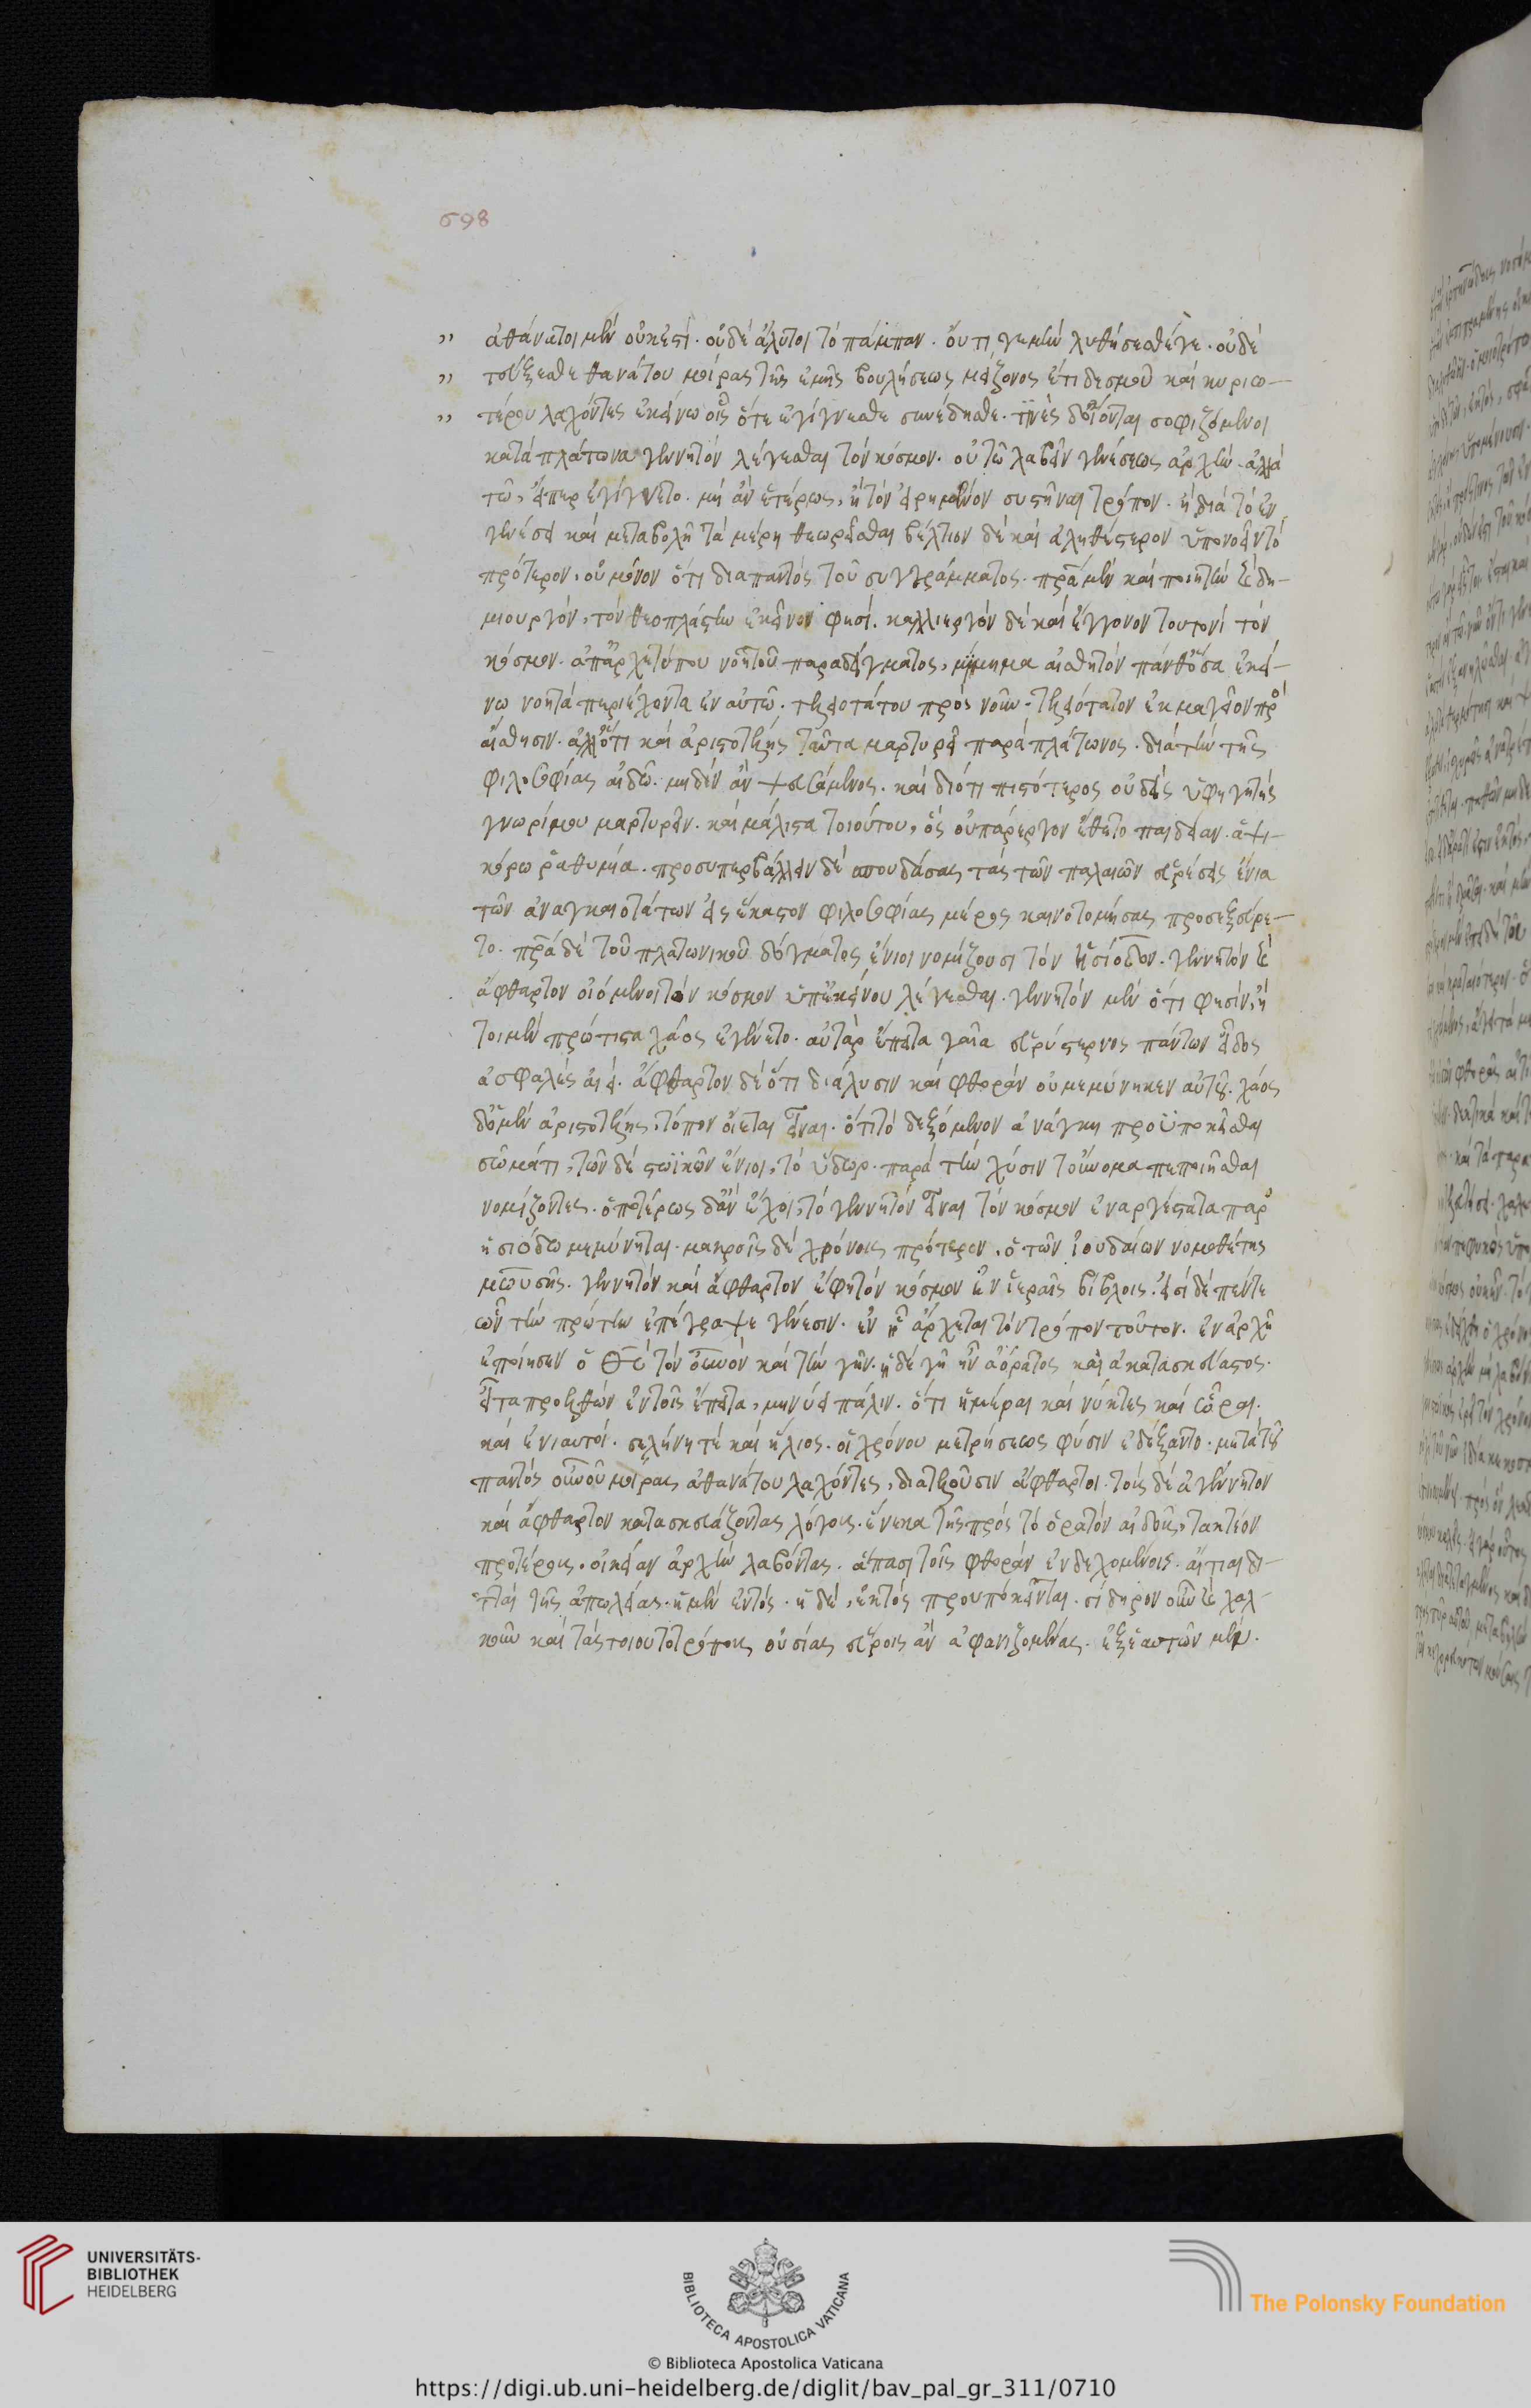 698
" ἀθάνατοι μὲν οὐκ ἐστὲ. οὐδὲ ἄλυτοι τὸ πάμπαν. οὔτι γεμὴν λυθήσεσθέγε. οὐδὲ
" τεύξεσθε θανάτου μοίρας τῆς ἐμῆς βουλήσεως μείζονος ἔτι δεσμοῦ καὶ κυριω-
" τέρου λαχόντες ἐκείνων οἷς ὅτε ἐγίγνεσθε συνέδησθε. τινὲς δὲ οἴονται σοφιζόμενοι
κατὰ πλάτωνα γενητὸν λέγεσθαι τὸν κόσμον. οὐ τῶ λαβεῖν γενέσεως ἀρχὴν. ἀλλὰ
τῶ, εἴπερ ἐγίγνετο. μὴ ἂν ἑτέρως, ἢ τὸν εἰρημένον συστῆναι τρόπον. ἢ διὰ τὸ ἐν
γενέσει καὶ μεταβολῆ τὰ μέρη θεωρεῖσθαι βέλτιον δὲ καὶ ἀληθέστερον ὑπονοεῖν τὸ
πρότερον, οὐ μόνον ὅτι διαπαντὸς τοῦ συγγράμματος. πρα μὲν καὶ ποιητὴν καὶ δη-
μιουργὸν, τὸν θεοπλάστην ἐκεῖνον φησὶ. καλλιεργὸν δὲ καὶ ἔγγονον τουτονὶ τὸν
κόσμον. ἀπ' ἀρχετύπου νοητοῦ παραδείγματος, μίμημα αἰσθητὸν πάνθ' ὅσα ἐκεί-
νω νοητὰ περιέχοντα ἐν αὐτῶ. τελειοτάτου πρὸς νοῦν. τελειότατον ἐκμαγεῖον πρὸ
αἴσθησιν. ἀλλ' ὅτι καὶ ἀριστοτέλης ταῦτα μαρτυρεῖ παρὰ πλάτωνος. διὰ τὴν τῆς
φιλοσοφίας αἰδῶ. μηδὲν ἂν ψευσάμενος. καὶ διότι πιστότερος οὐδεὶς ὑφηγητῆς
γνωρίμου μαρτυρεῖν. καὶ μάλιστα τοιούτου, ὃς οὐ πάρεργον ἔθετο παιδείαν. ἁψι-
κόρω ῥαθυμία. προσυπερβάλλειν δὲ σπουδάσας τὰς τῶν παλαιῶν εὑρέσεις ἔνια
τῶν ἀναγκαιοτάτων εἰς ἕκαστον φιλοσοφίας μέρος καινοτομήσας προσεξεύρε-
το. πρα δὲ τοῦ πλατωνικοῦ δόγματος ἔνιοι νομίζουσι τὸν ἡσίοδον. γενητὸν καὶ
ἄφθαρτον οἰόμενοι τὸν κόσμον ὑπ' ἐκείνου λέγεσθαι. γενητὸν μὲν ὅτι φησὶν, ἤ
τοι μὲν πρώτιστα χάος ἐγένετο. αὐτὰρ ἔπειτα γαῖα εὐρύστερνος πάντων ἕδος
ἀσφαλὲς αἰεί. ἄφθαρτον δὲ ὅτι διάλυσιν καὶ φθορὰν οὐ μεμήνηκεν αὐτοῦ. χάος
δὲ ὁ μὲν ἀριστοτέλης, τόπον οἴεται εἶναι. ὅτι τὸ δεξόμενον ἀνάγκη προϋποκεῖσθαι
σώματι, τῶν δὲ στωϊκῶν ἔνιοι, τὸ ὕδωρ. παρὰ τὴν χύσιν τοὔνομα πεποιῆσθαι
νομίζοντες. ὁποτέρως δ' ἂν ἔχοι, τὸ γενητὸν εἶναι τὸν κόσμον ἐναργέστατα παρ'
ἡσιόδω μεμήνυται. μακροῖς δὲ χρόνοις πρότερον. ὁ τῶν ἰουδαίων νομοθέτης
μωυσῆς. γενητὸν καὶ ἄφθαρτον ἔφη τὸν κόσμον ἐν ἱεραῖς βίβλοις. εἰσὶ δὲ πέντε
ὧν τὴν πρώτην ἐπέγραψε γένεσιν. ἐν ᾗ ἄρχεται τὸν τρόπον τοῦτον. ἐν ἀρχῆ
ἐποίησεν ὁ θς τὸν οὐνὸν καὶ τὴν γῆν. ἡ δὲ γῆ ἦν ἀόρατος καὶ ἀκατασκεύαστος.
εἶτα προελθὼν ἐν τοῖς ἔπειτα, μηνύει πάλιν. ὅτι ἡμέραι καὶ νύκτες καὶ ὧραι.
καὶ ἐνιαυτοὶ. σελήνη τὲ καὶ ἥλιος. οἳ χρόνου μετρήσεως φύσιν ἐδέξαντο. μετὰ τοῦ
παντὸς οὐνοῦ μοίρας ἀθανάτου λαχόντες, διατελοῦσιν ἄφθαρτοι. τοὺς δὲ ἀγένητον
καὶ ἄφθαρτον κατασκευάζοντας λόγους. ἕνεκα τῆς πρὸς τὸ ὁρατὸν αἰδοῦς, τακτέον
προτέρους. οἰκείαν ἀρχὴν λαβόντας. ἅπασι τοῖς φθορὰν ἐνδεχομένοις. αἰτίαι δι-
τταὶ τῆς ἀπωλείας. ἡ μὲν ἐντὸς. ἡ δὲ, ἐκτὸς προυπόκεινται. σίδηρον οὖν καὶ χαλ-
κὸν καὶ τὰς τοιουτοτρόπους οὐσίας εὕροις ἂν ἀφανιζομένας. ἐξ ἑαυτῶν μὲν.
UNIVERSITÄTS-
BIBLIOTHEK
HEIDELBERG
BIBLIOTECA APOSTOLICA VATICANA
The Polonsky Foundation
© Biblioteca Apostolica Vaticana
https://digi.ub.uni-heidelberg.de/diglit/bav_pal_gr_311/0710